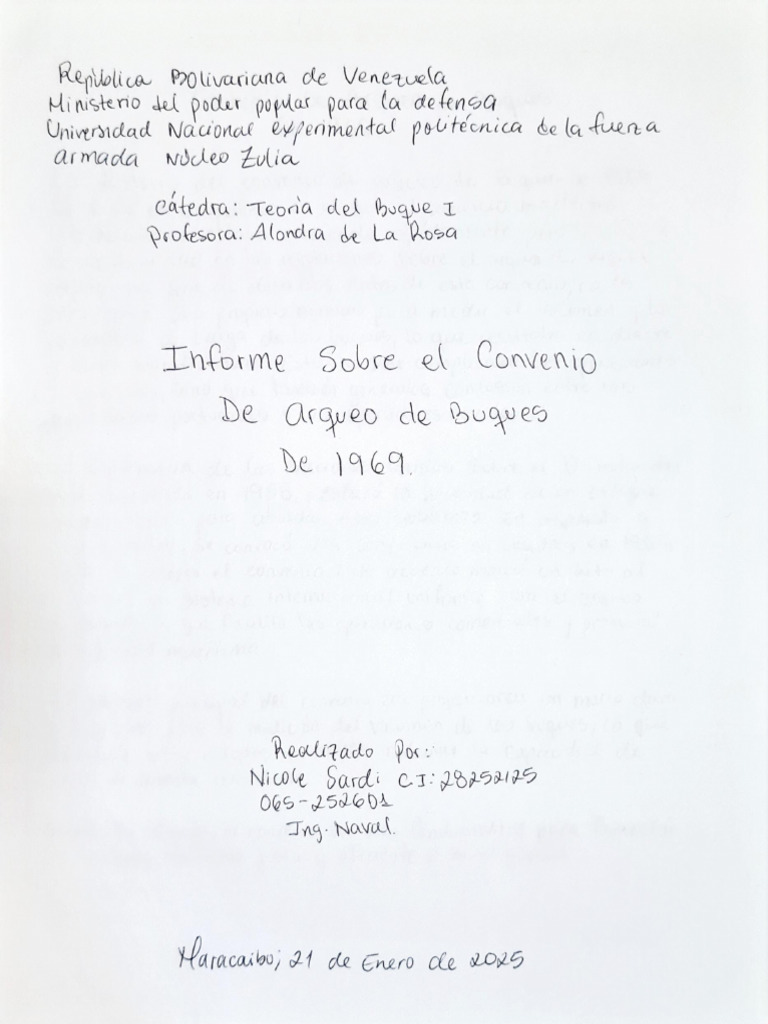 República Bolivariana de Venezuela
Ministerio del poder popular para la defensa
Universidad Nacional experimental politécnica de la fuerza
armada Núcleo Zulia
cátedra: Teoría del Buque I
Profesora: Alondra de La Rosa
Informe Sobre el Convenio
De Arqueo de Buques
De 1969.
Realizado Por:
Nicole Sardi C.I: 28252125
065-252601
Ing. Naval.
Maracaibo; 21 de Enero de 2025